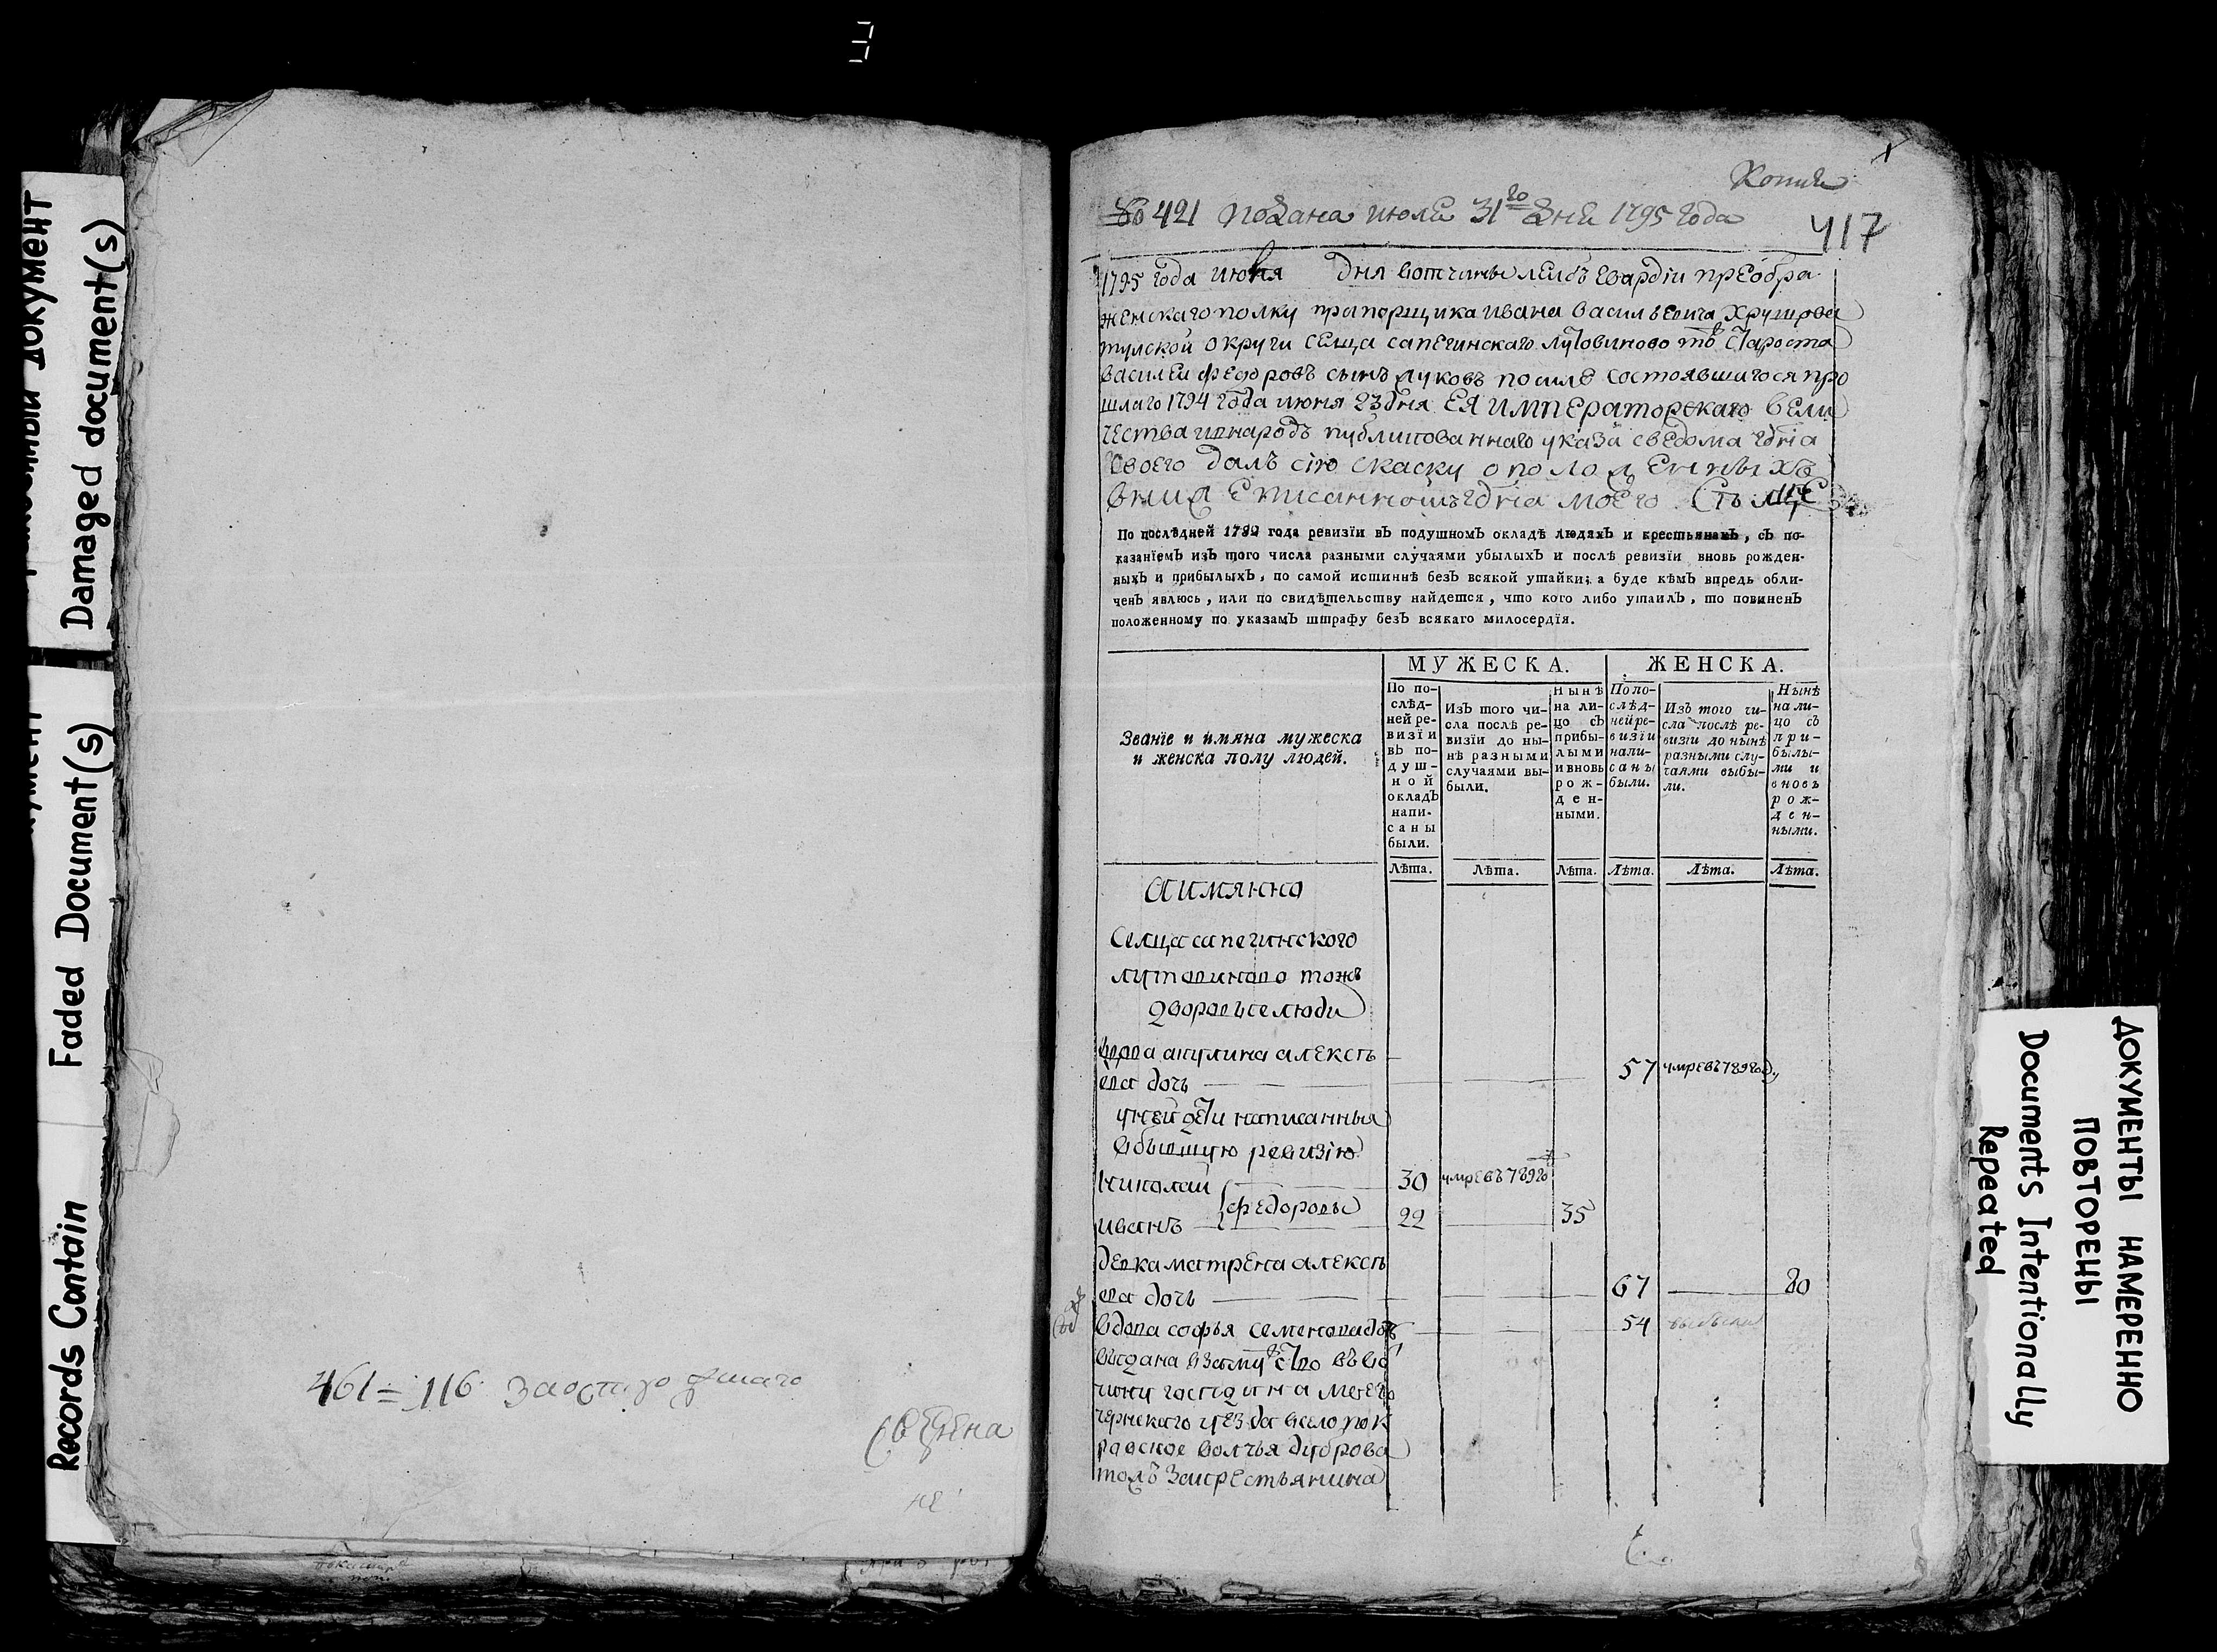 3
ДОКУМЕНТ
Damaged document(s)
Faded Document(s)
Records Contain
461 = 116
не
Копия
№ 421 подана июля 31го дня 1795 года
417
1795 года июня дня вотчины леибъ гвардіи преобра
женскаго полку прапорщика ивана васильевича хрущова
тулской округи селца сапегинскаго лутовиново тожъ староста
василеи федоровъ сынъ луковъ посиле состоявшагося про
шлаго 1794 года июня 23 дня ЕЯ императорскаго вели
чества внародъ публикованнаго указа сведома гдна
своего далъ сію скаску оположенныхъ
внижеписанномъ гдна моего
По послѣдней 1782 года ревизїи вЪ подушномЪ окладѣ людяхЪ и крестьянахЪ, сЪ по-
казанїемЪ изЪ того числа разными случаями убылыхЪ и послѣ ревизїи вновь рожден-
ныхЪ и прибылыхЪ, по самой истиннѣ безЪ всякой утайки; а буде кѣмЪ впредь обли-
ченЪ явлюсь, или по свидѣтельству найдется, что кого либо утаилЪ, то повиненЪ
положенному по указамЪ штрафу безЪ всякаго милосердїя.
МУЖЕСКА.
ЖЕНСКА.
Званїе и имяна мужеска
и женска полу людей.
По по-
слѣд-
ней ре-
визїи
вЪ по-
душ-
ной
окладЪ
напи-
саны
были.
ИзЪ того чи-
сла послѣ ре-
визїи до ны-
нѣ разными
случаями вы-
были.
Нынѣ
на ли-
цо сЪ
прибы-
лыми
и вновь
рож-
ден-
ными.
По по-
слѣд-
ней ре-
визїи
напи-
саны
были.
ИзЪ того чи-
сла послѣ ре-
визїи до нынѣ
разными слу-
чаями выбы-
ли.
Нынѣ
на ли-
цо сЪ
при-
былы-
ми и
вновь
рож-
ден-
ными.
Лѣта. Лѣта. Лѣта. Лѣта. Лѣта. Лѣта.
Аимянно
Селца сапегинского
лутовиново тожъ
дворовые люди
вдова акулина алексѣ
ева дочь 57 умре въ 789 году
унеи дѣти написанныя
вбывшую ревизію
николаи 30 умре въ 789 го
федоровы
иванъ 22 35
девка матрена алексѣ
ева дочь 67 80
вдова софья семенова дочь 54 выбыла
выдана взамужство въ вот
чину господина
чернскаго уезда всело пок
равское волчья дуброва
тожъ закрестьянина
ДОКУМЕНТЫ НАМЕРЕННО
ПОВТОРЕНЫ
Documents Intentionally
Repeated